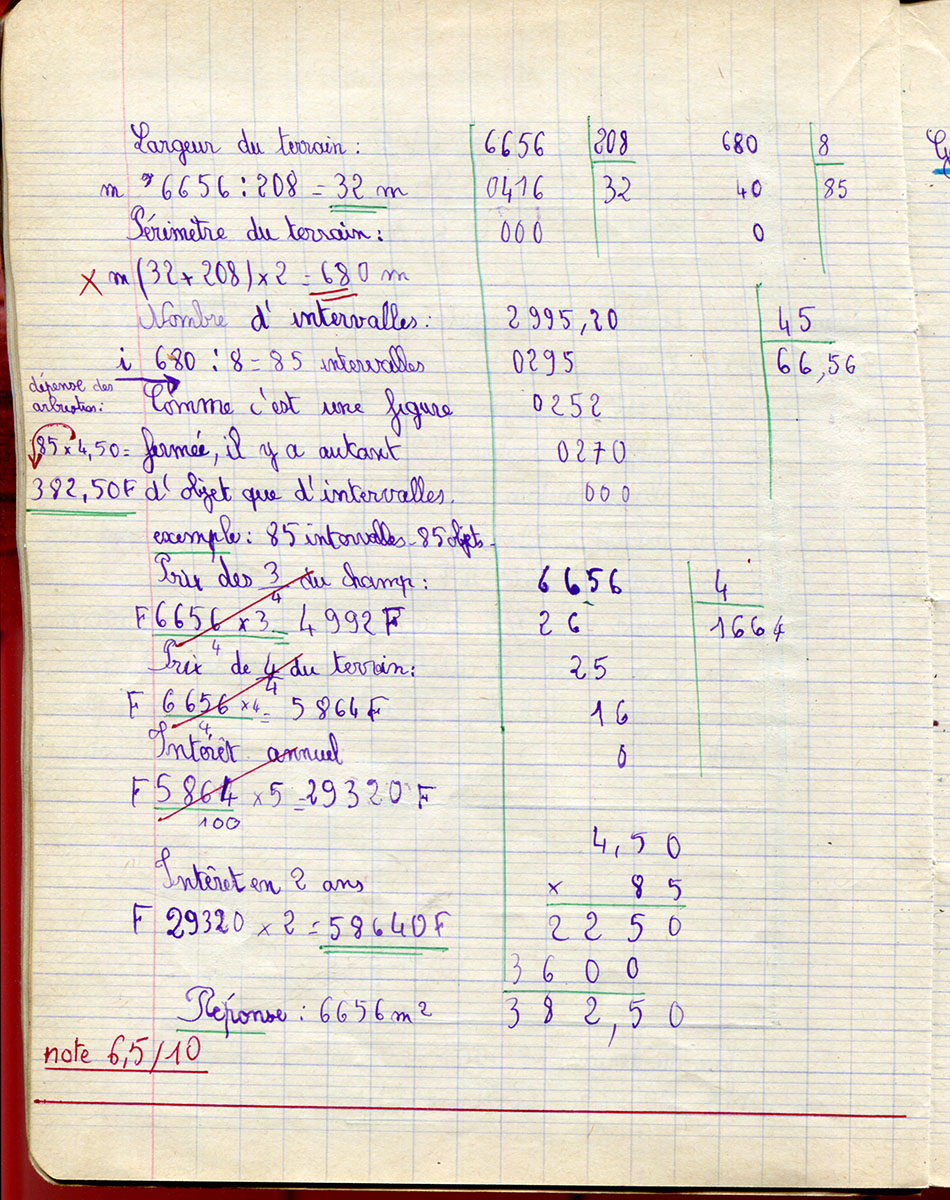 Largeur du terrain :
m² 6656 : 208 = 32 m
Périmètre du terrain :
x m (32 + 208) × 2 = 680 m
Nombre d'intervalles :
i 680 : 8 = 85 intervalles
dépense des
arbustres :
Comme c'est une figure
85 × 4,50 =
fermée, il y a autant
382,50F
d'objet que d'intervalles.
exemple : 85 intervalles - 85 objets -
Prix des 3/4 du champ :
F 6656 × 3 / 4 = 4992 F
Prix de 4/4 du terrain :
F 6656 × 4 / 4 = 5864 F
Intérêt annuel
F 5864 × 5 / 100 = 29320 F
Intérêt en 2 ans
F 29320 × 2 = 58640 F
Réponse : 6656 m²
note 6,5/10
6656 208
0416 32
000
680 8
40 85
0
2995,20 45
0295 66,56
0252
0270
000
6656 4
26 1664
25
16
0
4,50
× 85
2250
3600
382,50